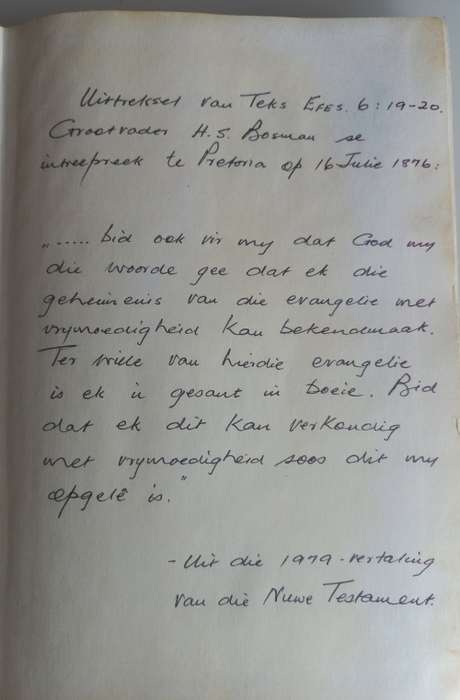 Uittreksel van Teks Efes. 6:19-20.
Grootvader H.S. Bosman se
intreepreek te Pretoria op 16 Julie 1876:
„..... bid ook vir my dat God my
die woorde gee dat ek die
geheimenis van die evangelie met
vrymoedigheid kan bekendmaak.
Ter wille van hierdie evangelie
is ek 'n gesant in boeie. Bid
dat ek dit kan verkondig
met vrymoedigheid soos dit my
opgelê is."
- Uit die 1979-vertaling
van die Nuwe Testament.